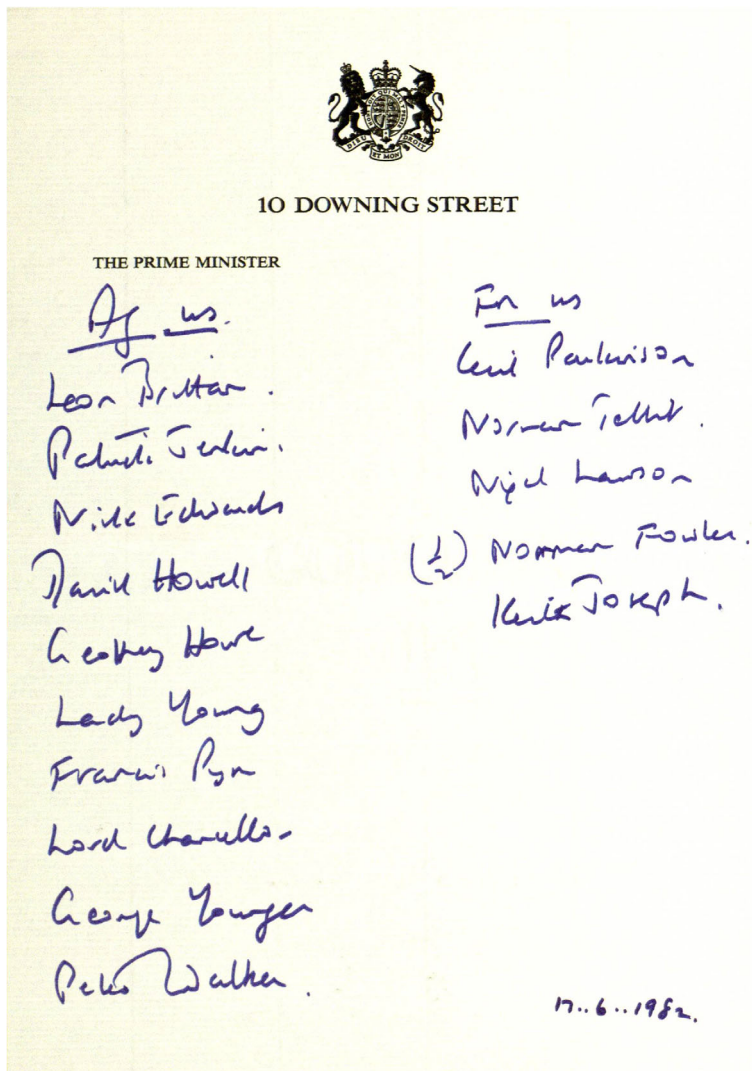 DIEU ET MON DROIT
10 DOWNING STREET
THE PRIME MINISTER
Ag us.
Leon Brittan.
Patrick Jenkin.
Nick Edwards
David Howell
Geoffrey Howe
Lady Young
Francis Pym
Lord Chancellor
George Younger
Peter Walker.
For us
Cecil Parkinson
Norman Tebbit.
Nigel Lawson
(½) Norman Fowler.
Keith Joseph.
17..6..1982.